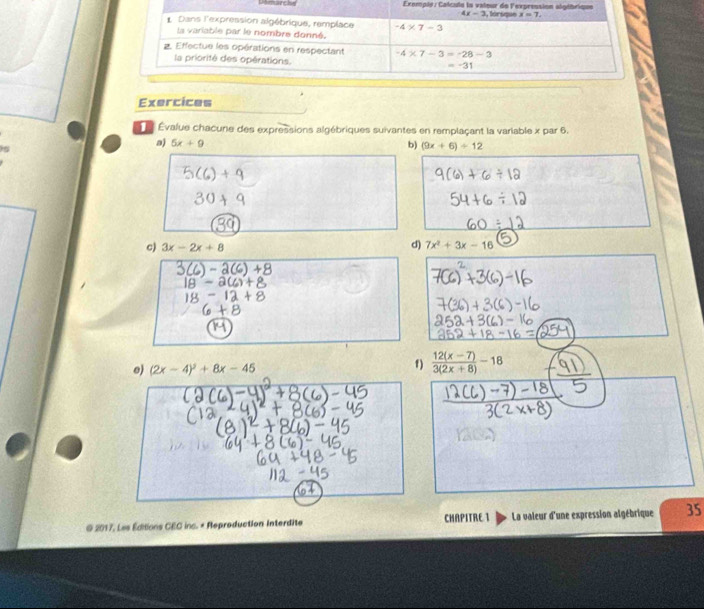 Démarche
Exemple : Calcule la valeur de l'expression algébrique
4x − 3, lorsque x = 7.
1. Dans l'expression algébrique, remplace
la variable par le nombre donné.
-4 × 7 − 3
2. Effectue les opérations en respectant
la priorité des opérations.
-4 × 7 − 3 = -28 − 3
= -31
Exercices
1 Évalue chacune des expressions algébriques suivantes en remplaçant la variable x par 6.
a) 5x + 9
5(6) + 9
30 + 9
39
b) (9x + 6) ÷ 12
9(6) + 6 ÷ 12
54 + 6 ÷ 12
60 ÷ 12
5
c) 3x − 2x + 8
3(6) - 2(6) + 8
18 - 2(6) + 8
18 - 12 + 8
6 + 8
14
d) 7x² + 3x − 16
7(6)² + 3(6) - 16
7(36) + 3(6) - 16
252 + 3(6) - 16
252 + 18 - 16 = 254
e) (2x − 4)² + 8x − 45
(2(6) - 4)² + 8(6) - 45
(12 - 4)² + 8(6) - 45
(8)² + 8(6) - 45
64 + 8(6) - 45
64 + 48 - 45
112 - 45
67
f) 12(x − 7) / 3(2x + 8) − 18
-91 / 5
12(6) - 7) - 18
3(2x+8)
© 2017, Les Éditions CEC inc. • Reproduction interdite
CHAPITRE 1 ▶ La valeur d'une expression algébrique 35